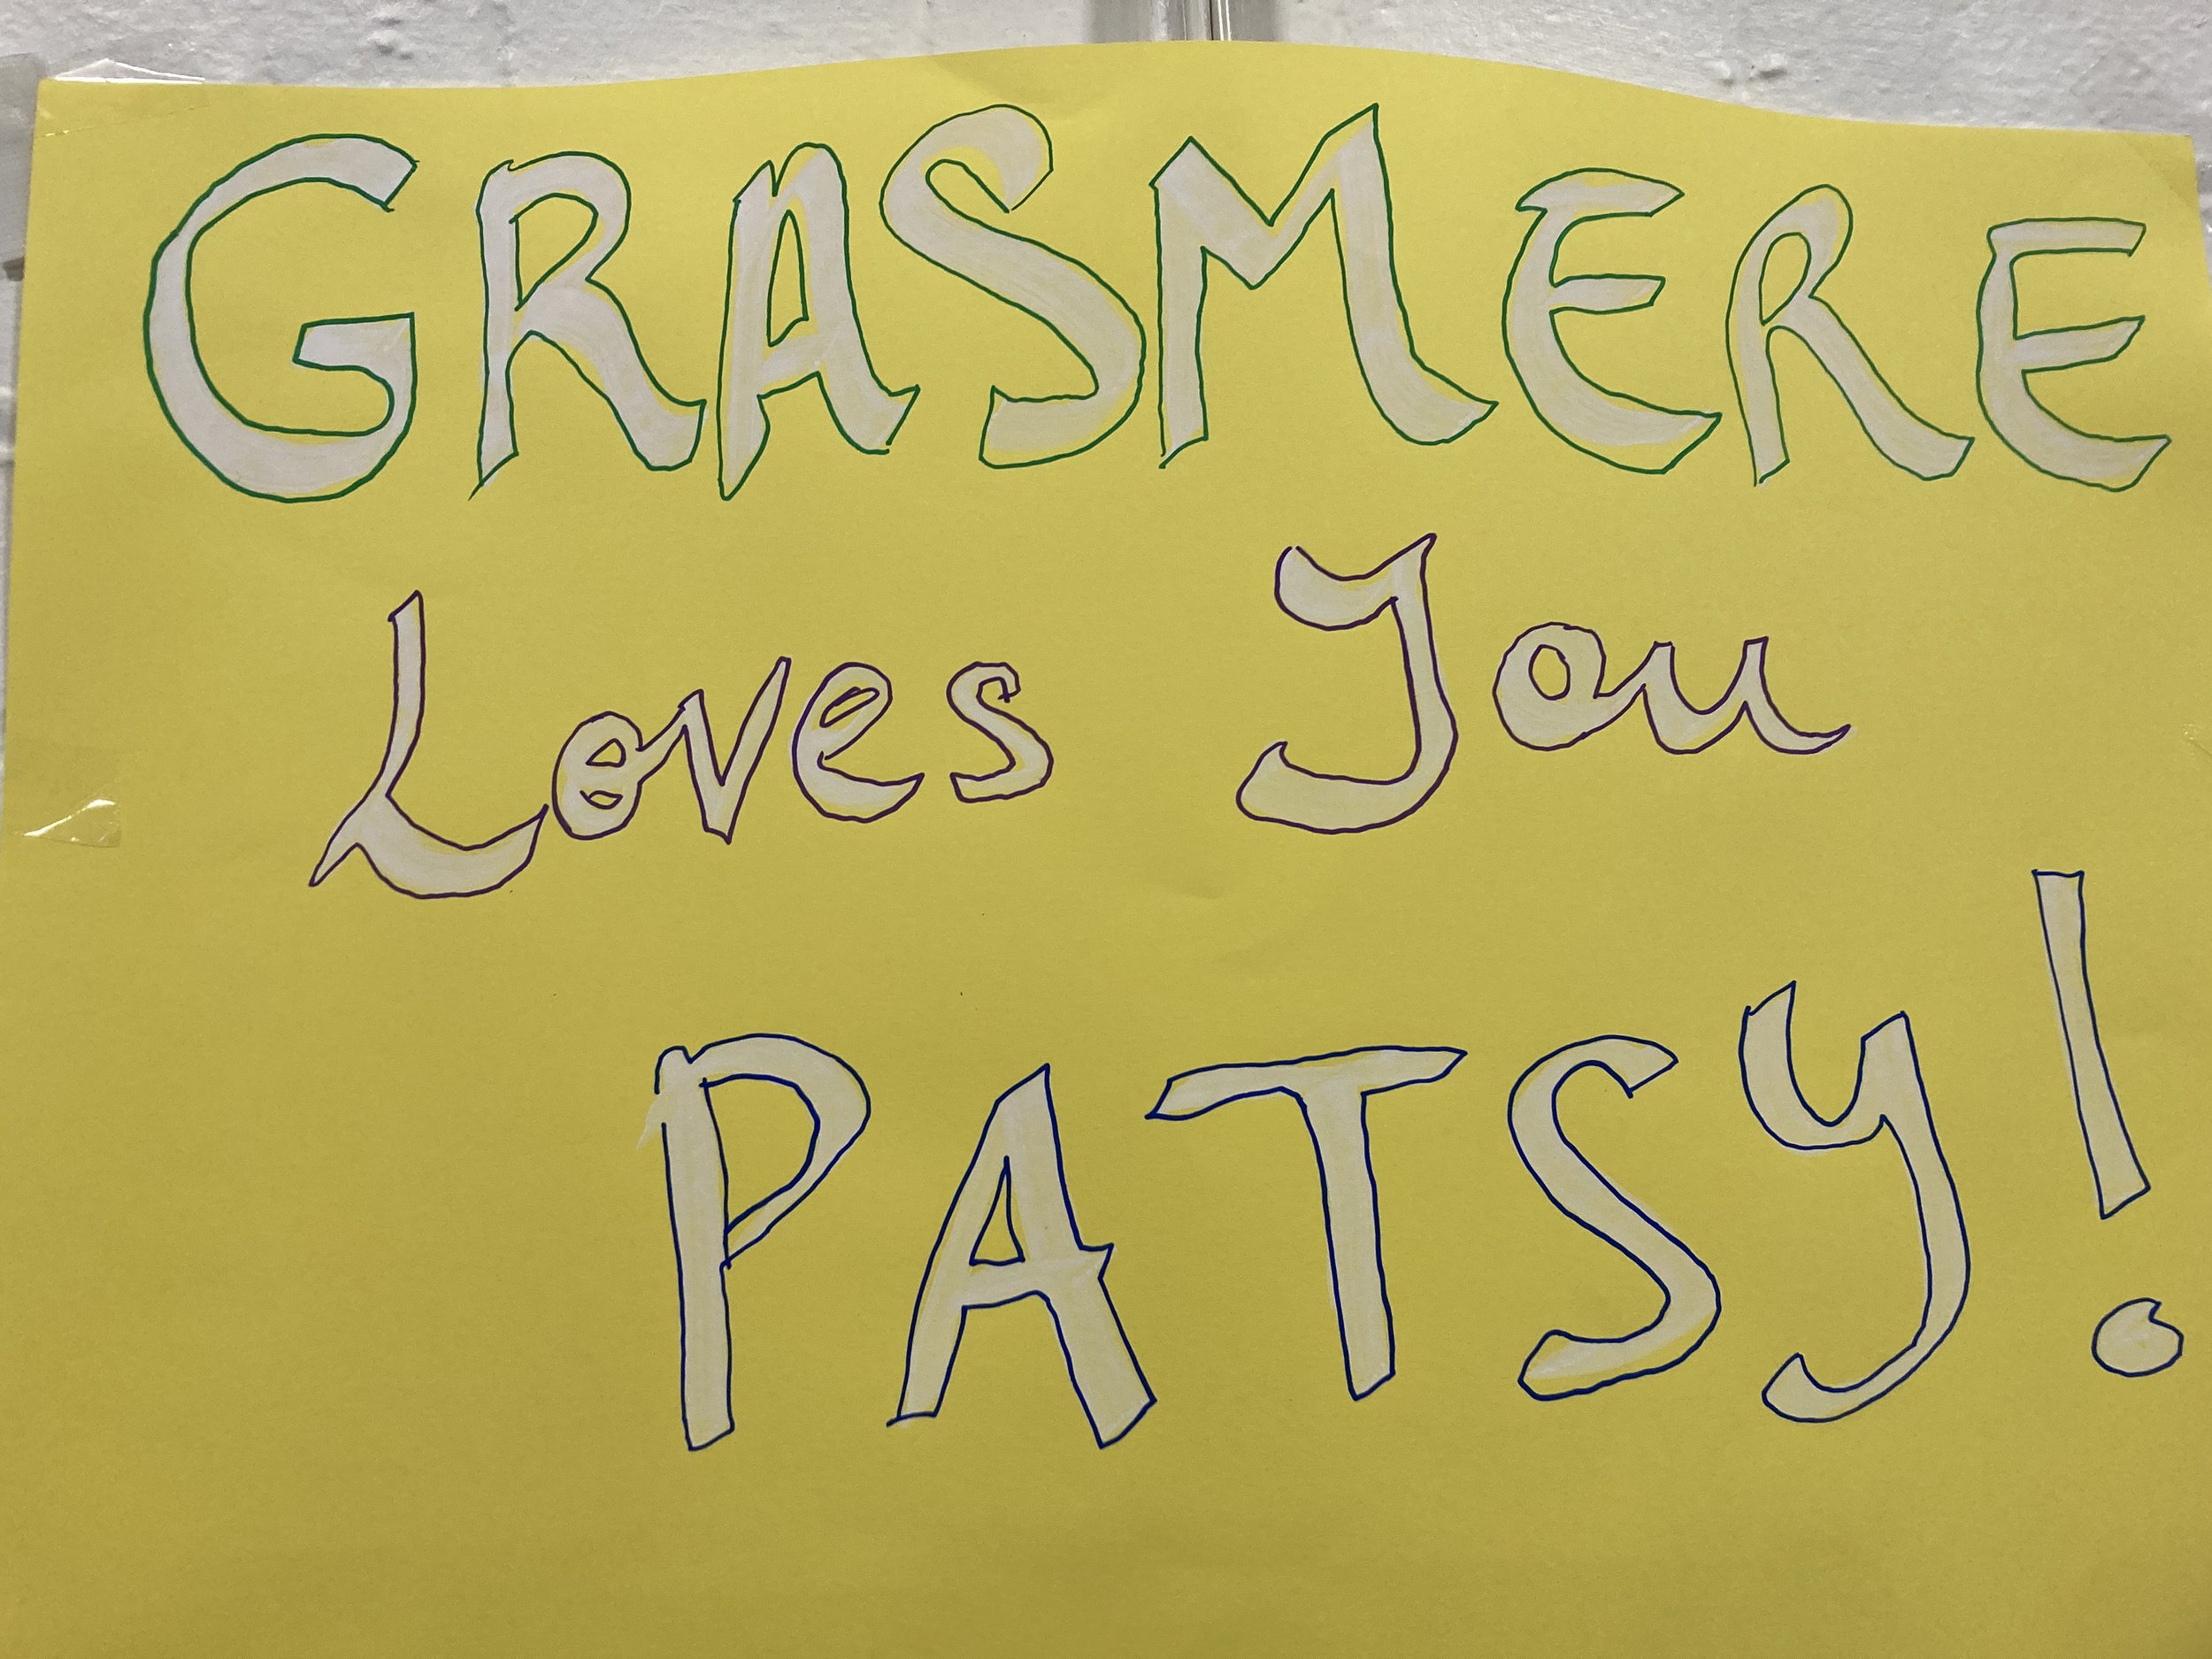 GRASMERE
Loves You
PATSY!